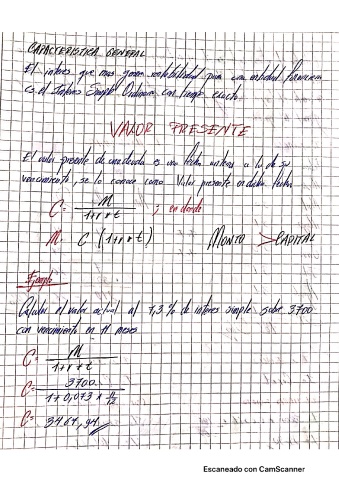 CARACTERISTICA GENERAL
El interes que mas genera rentabilidad para una entidad financiera
es el Interes Simple Ordinario con tiempo exacto.
VALOR PRESENTE
El valor presente de una deuda es una fecha anterior a la de su
vencimiento, se lo conoce como Valor presente en dicha fecha
C = M / 1+r×t ; en donde
M = C (1+r×t) MONTO > CAPITAL
Ejemplo
Calcular el valor actual al 7,3% de interes simple sobre 3700
con vencimiento en 11 meses
C = M / 1+r×t
C = 3700 / 1+0,073 ×
C = 3467,94
Escaneado con CamScanner